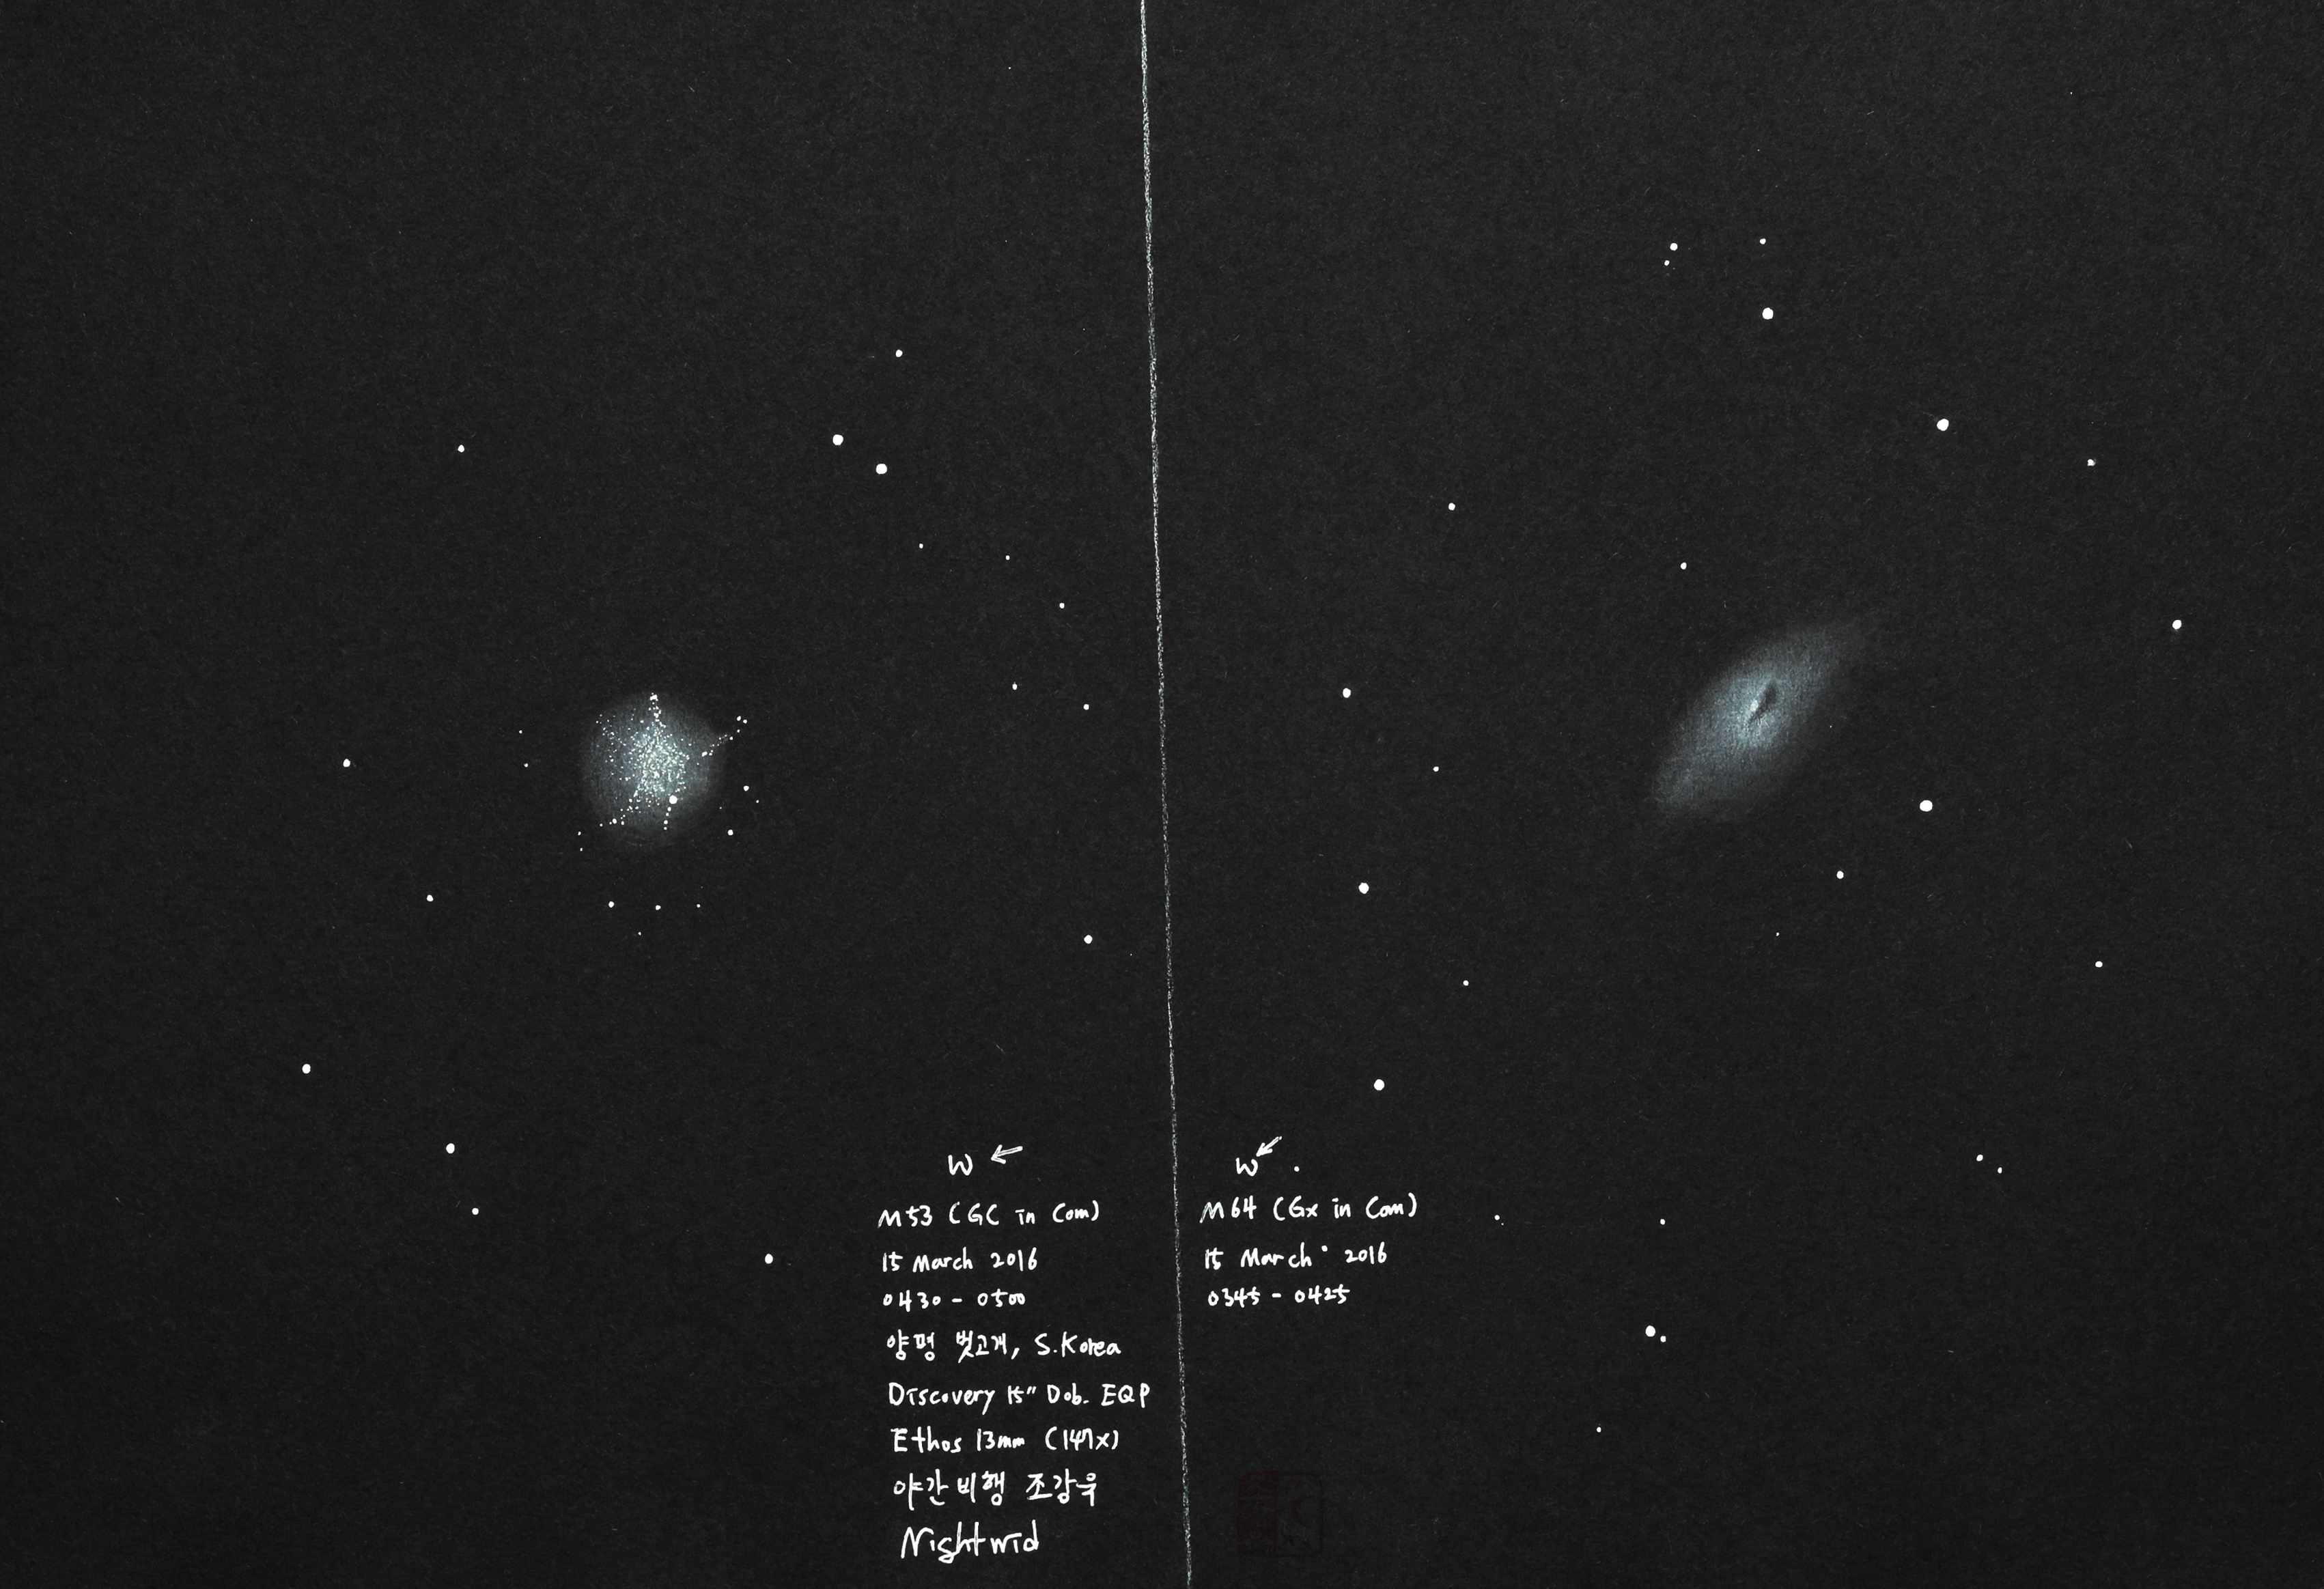 W ←
M53 (GC in Com)
15 March 2016
0430 - 0500
양평 벗고개, S.Korea
Discovery 15" Dob. EQP
Ethos 13mm (147x)
야간비행 조강욱
Nightwid
W ↙
M64 (Gx in Com)
15 March 2016
0345 - 0425